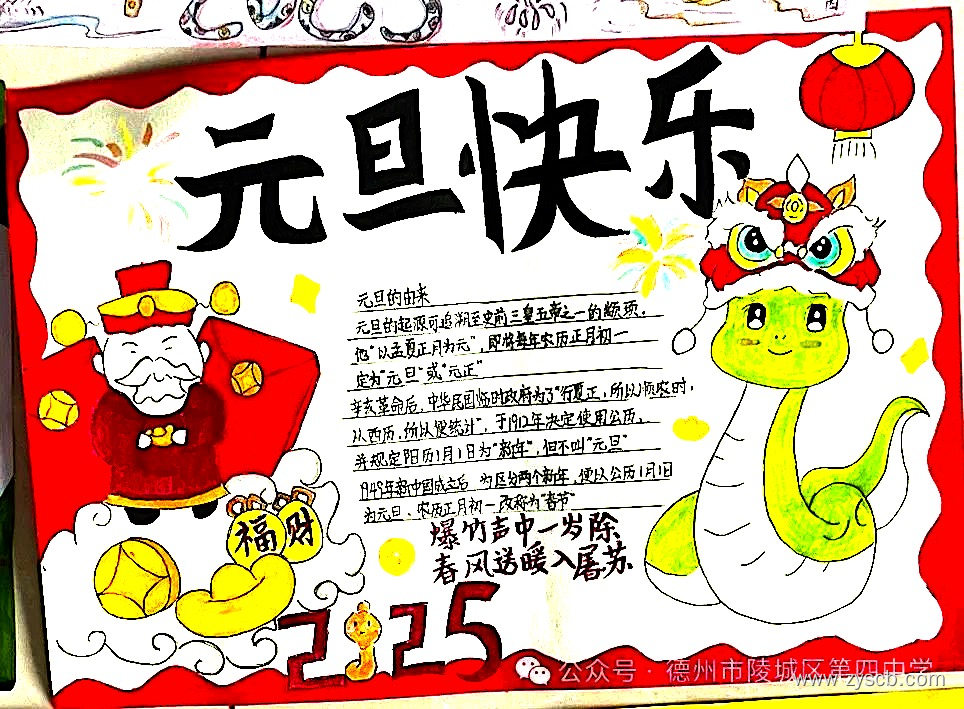 元旦快乐
元旦的由来
元旦的起源可追溯至史前三皇五帝之一的颛顼,
他"以孟夏正月为元",即将每年农历正月初一
定为"元旦"或"元正"
辛亥革命后,中华民国临时政府为了"行夏正,所以顺农时,
从西历,所以便统计",于1912年决定使用公历,
并规定阳历1月1日为"新年",但不叫"元旦"
1949年新中国成立后,为区分两个新年,便以公历1月1日
为元旦、农历正月初一改称为"春节"
爆竹声中一岁除
春风送暖入屠苏
福 财
2025
公众号 · 德州市陵城区第四中学
www.zyscb.com